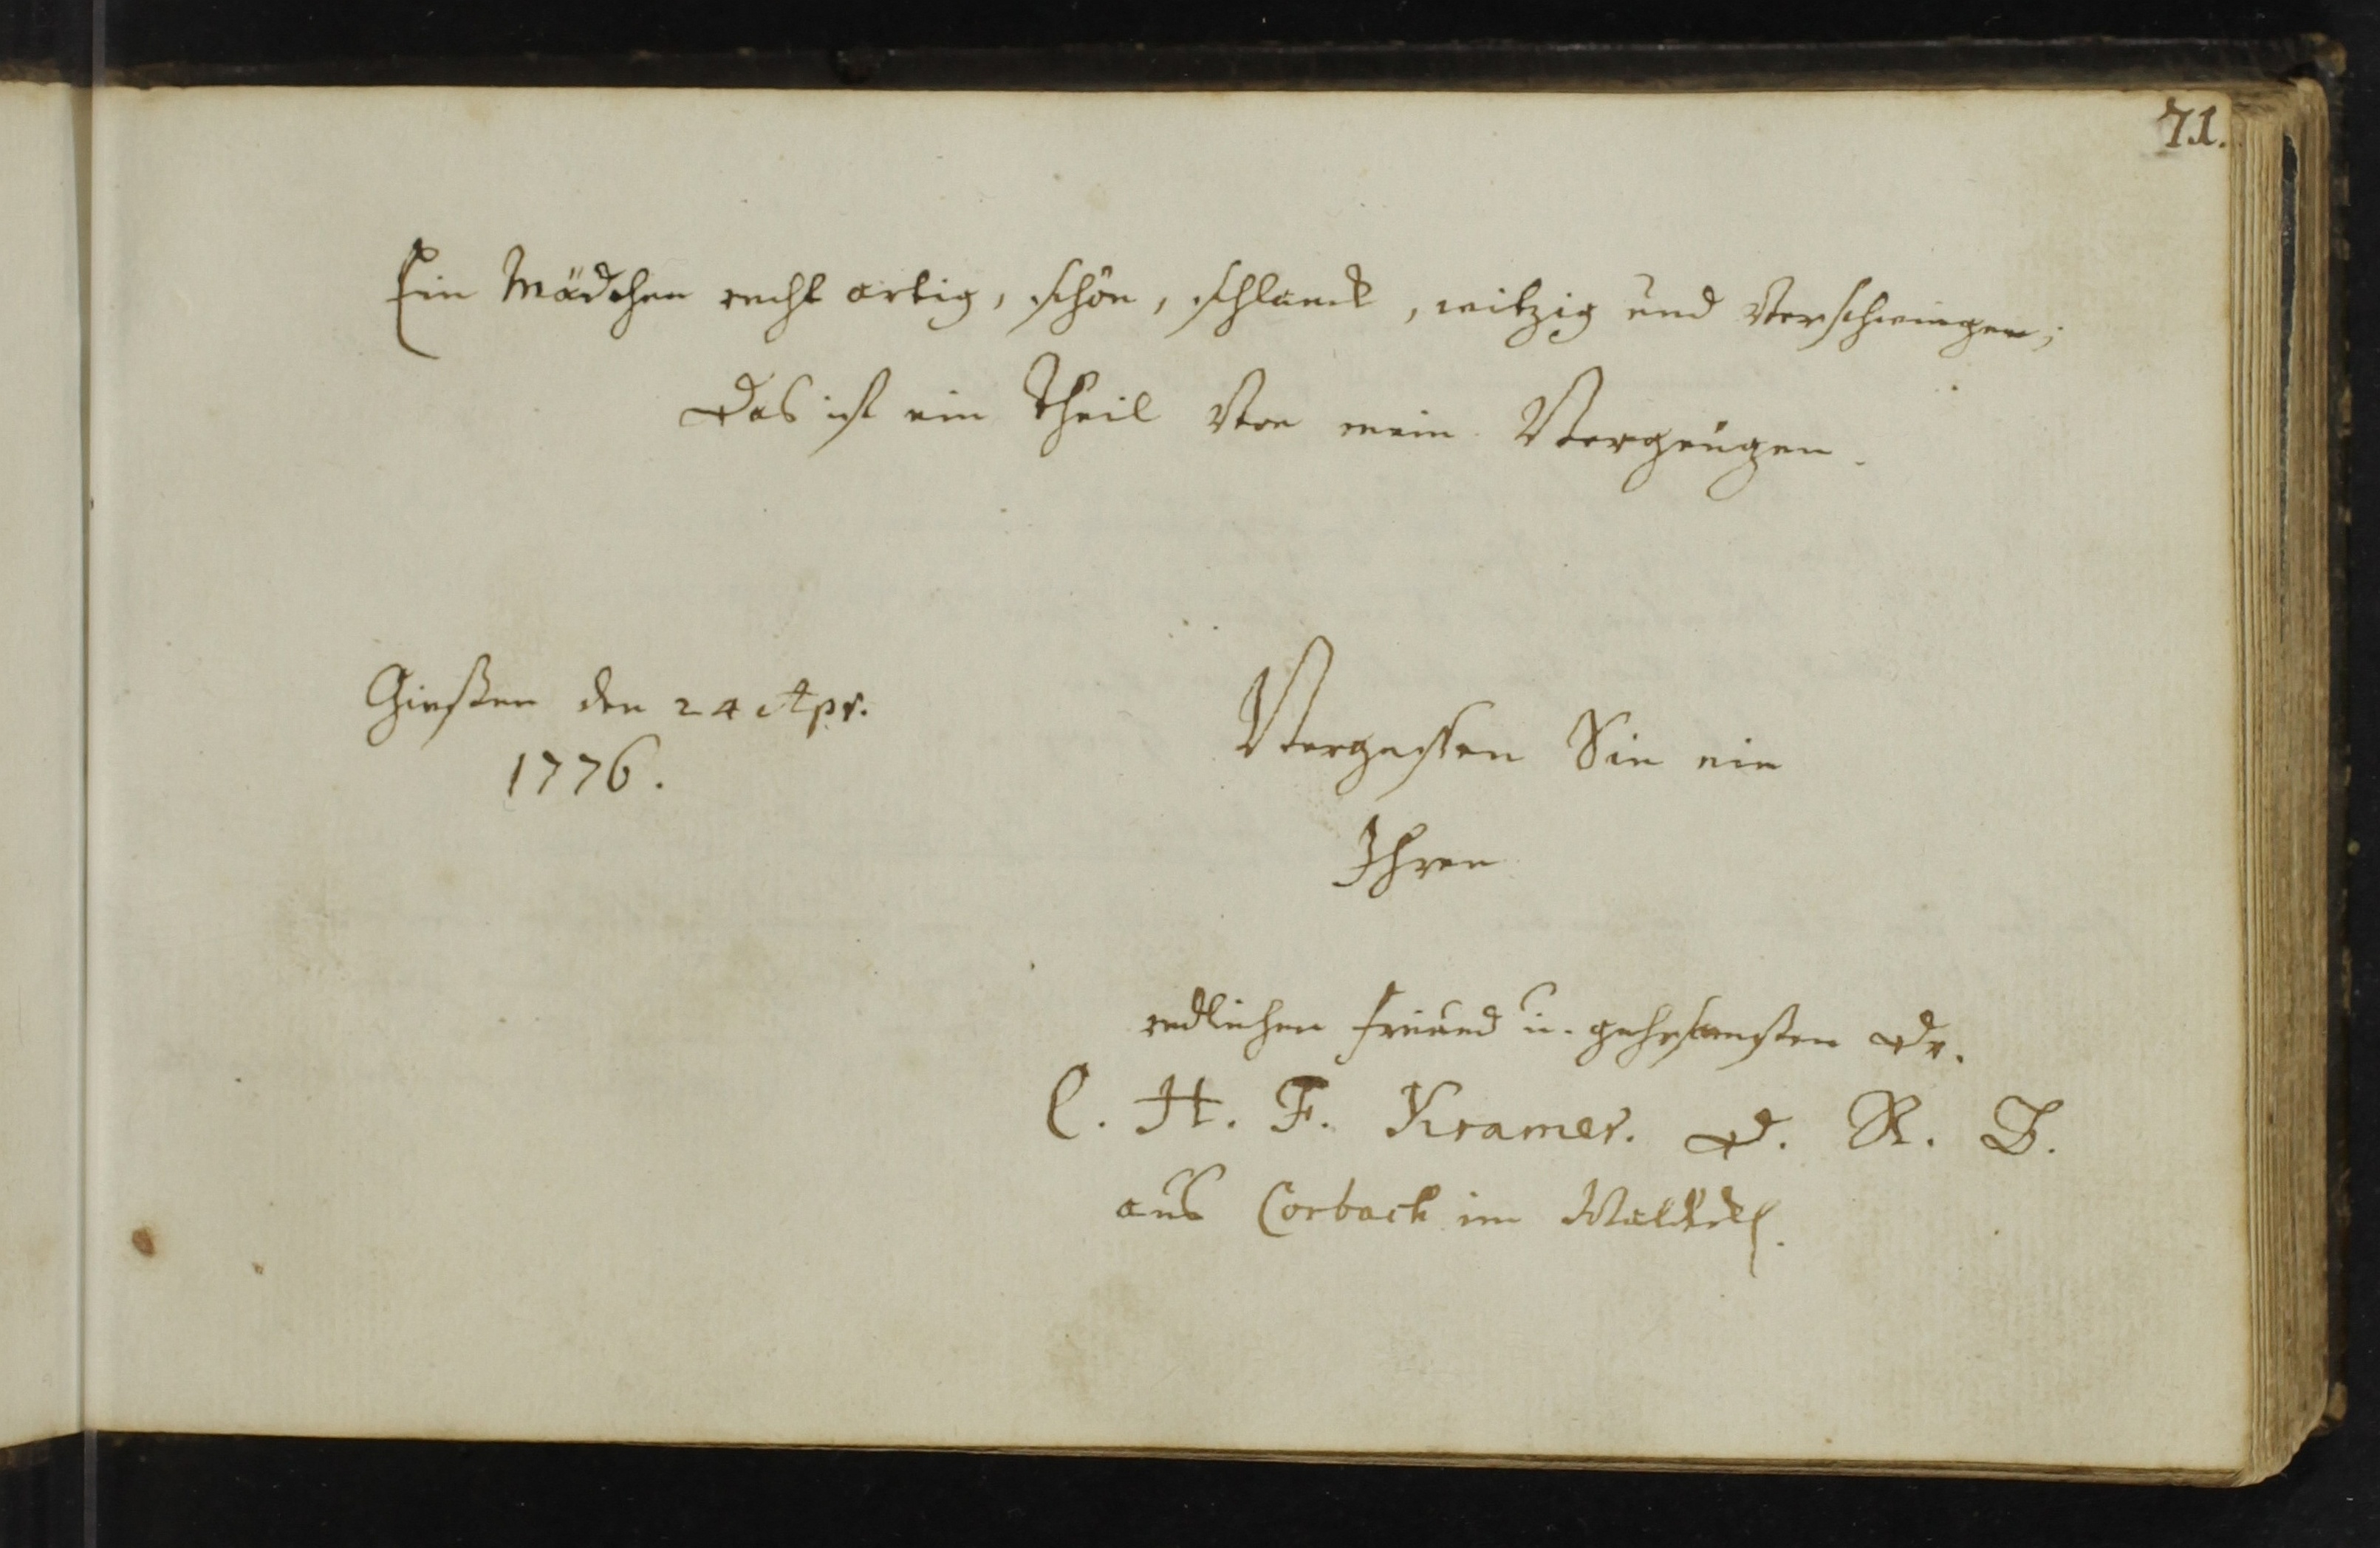 71.
Ein Mädchen recht artig, schön, schlanck, witzig und Verschwiegen;
Das ist ein Theil Von mein Vergnügen.
Giesßen den 24 Apr.
1776.
Vergessen Sie nie
Ihren
redlichen Freund u. gehorsamsten Dr.
C. H. F. Kramer. d. R. B.
aus Corbach im